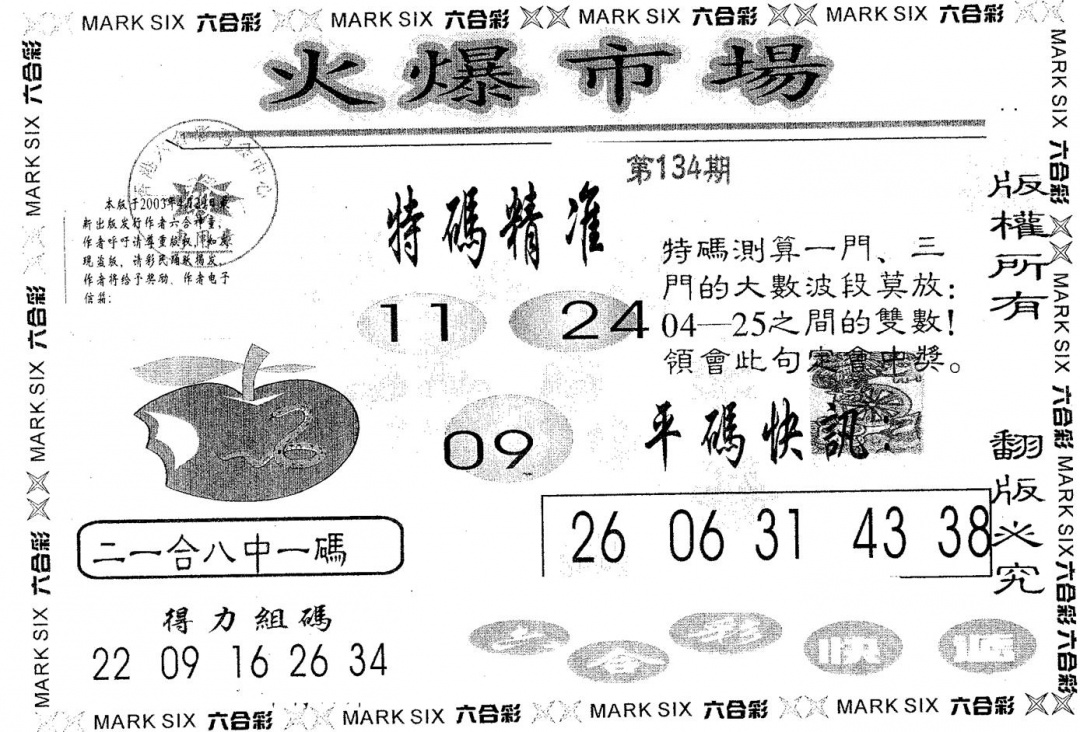 MARK SIX 六合彩 MARK SIX 六合彩 MARK SIX 六合彩 MARK SIX 六合彩
火爆市場
第134期
特碼精准
本版于2003年
新出版发行作者六合神童,
作者呼吁请尊重版权,如发
现盗版,请彩民踊跃揭发,
作者将给予奖励.作者电子
信箱:
11 24
09
特碼測算一門、三
門的大數波段莫放:
04—25之間的雙數!
領會此句定會中獎。
平碼快訊:
26 06 31 43 38
二一合八中一碼
得力組碼
22 09 16 26 34
六合彩快遞
版權所有
翻版必究
MARK SIX 六合彩 MARK SIX 六合彩 MARK SIX 六合彩
MARK SIX 六合彩 MARK SIX 六合彩 MARK SIX 六合彩 六合彩
MARK SIX 六合彩 MARK SIX 六合彩 MARK SIX 六合彩 MARK SIX 六合彩